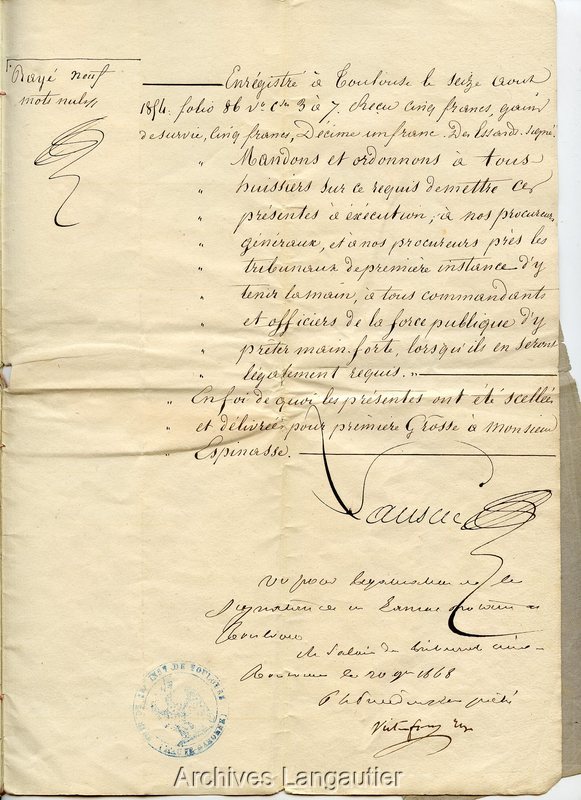 Rayé neuf
mots nuls
Enrégistré à Toulouse le seize aout
1854. folio 86 Vo Cse 3 à 7. Reçu cinq francs, gain
de survie, cinq francs, Décime un franc. Des Essards. signé.
" Mandons et ordonnons à tous
" huissiers sur ce requis de mettre ces
" présentes à éxécution, à nos procureurs
" généraux, et à nos procureurs près les
" tribunaux de première instance d'y
" tenir la main, à tous commandants
" et officiers de la force publique d'y
" prêter main-forte, lorsqu'ils en seront
" légalement requis. "
" En foi de quoi les présentes ont été scellées
" et délivrées pour première Grosse à Monsieur
" Espinasse.
Sansac
Vu pour légalisation de la
signature de Sansac notaire à
Toulouse
Au Palais du Tribunal civil
Toulouse le 20 1868
DE TOULOUSE
(HAUTE GARONNE)
Archives Langautier